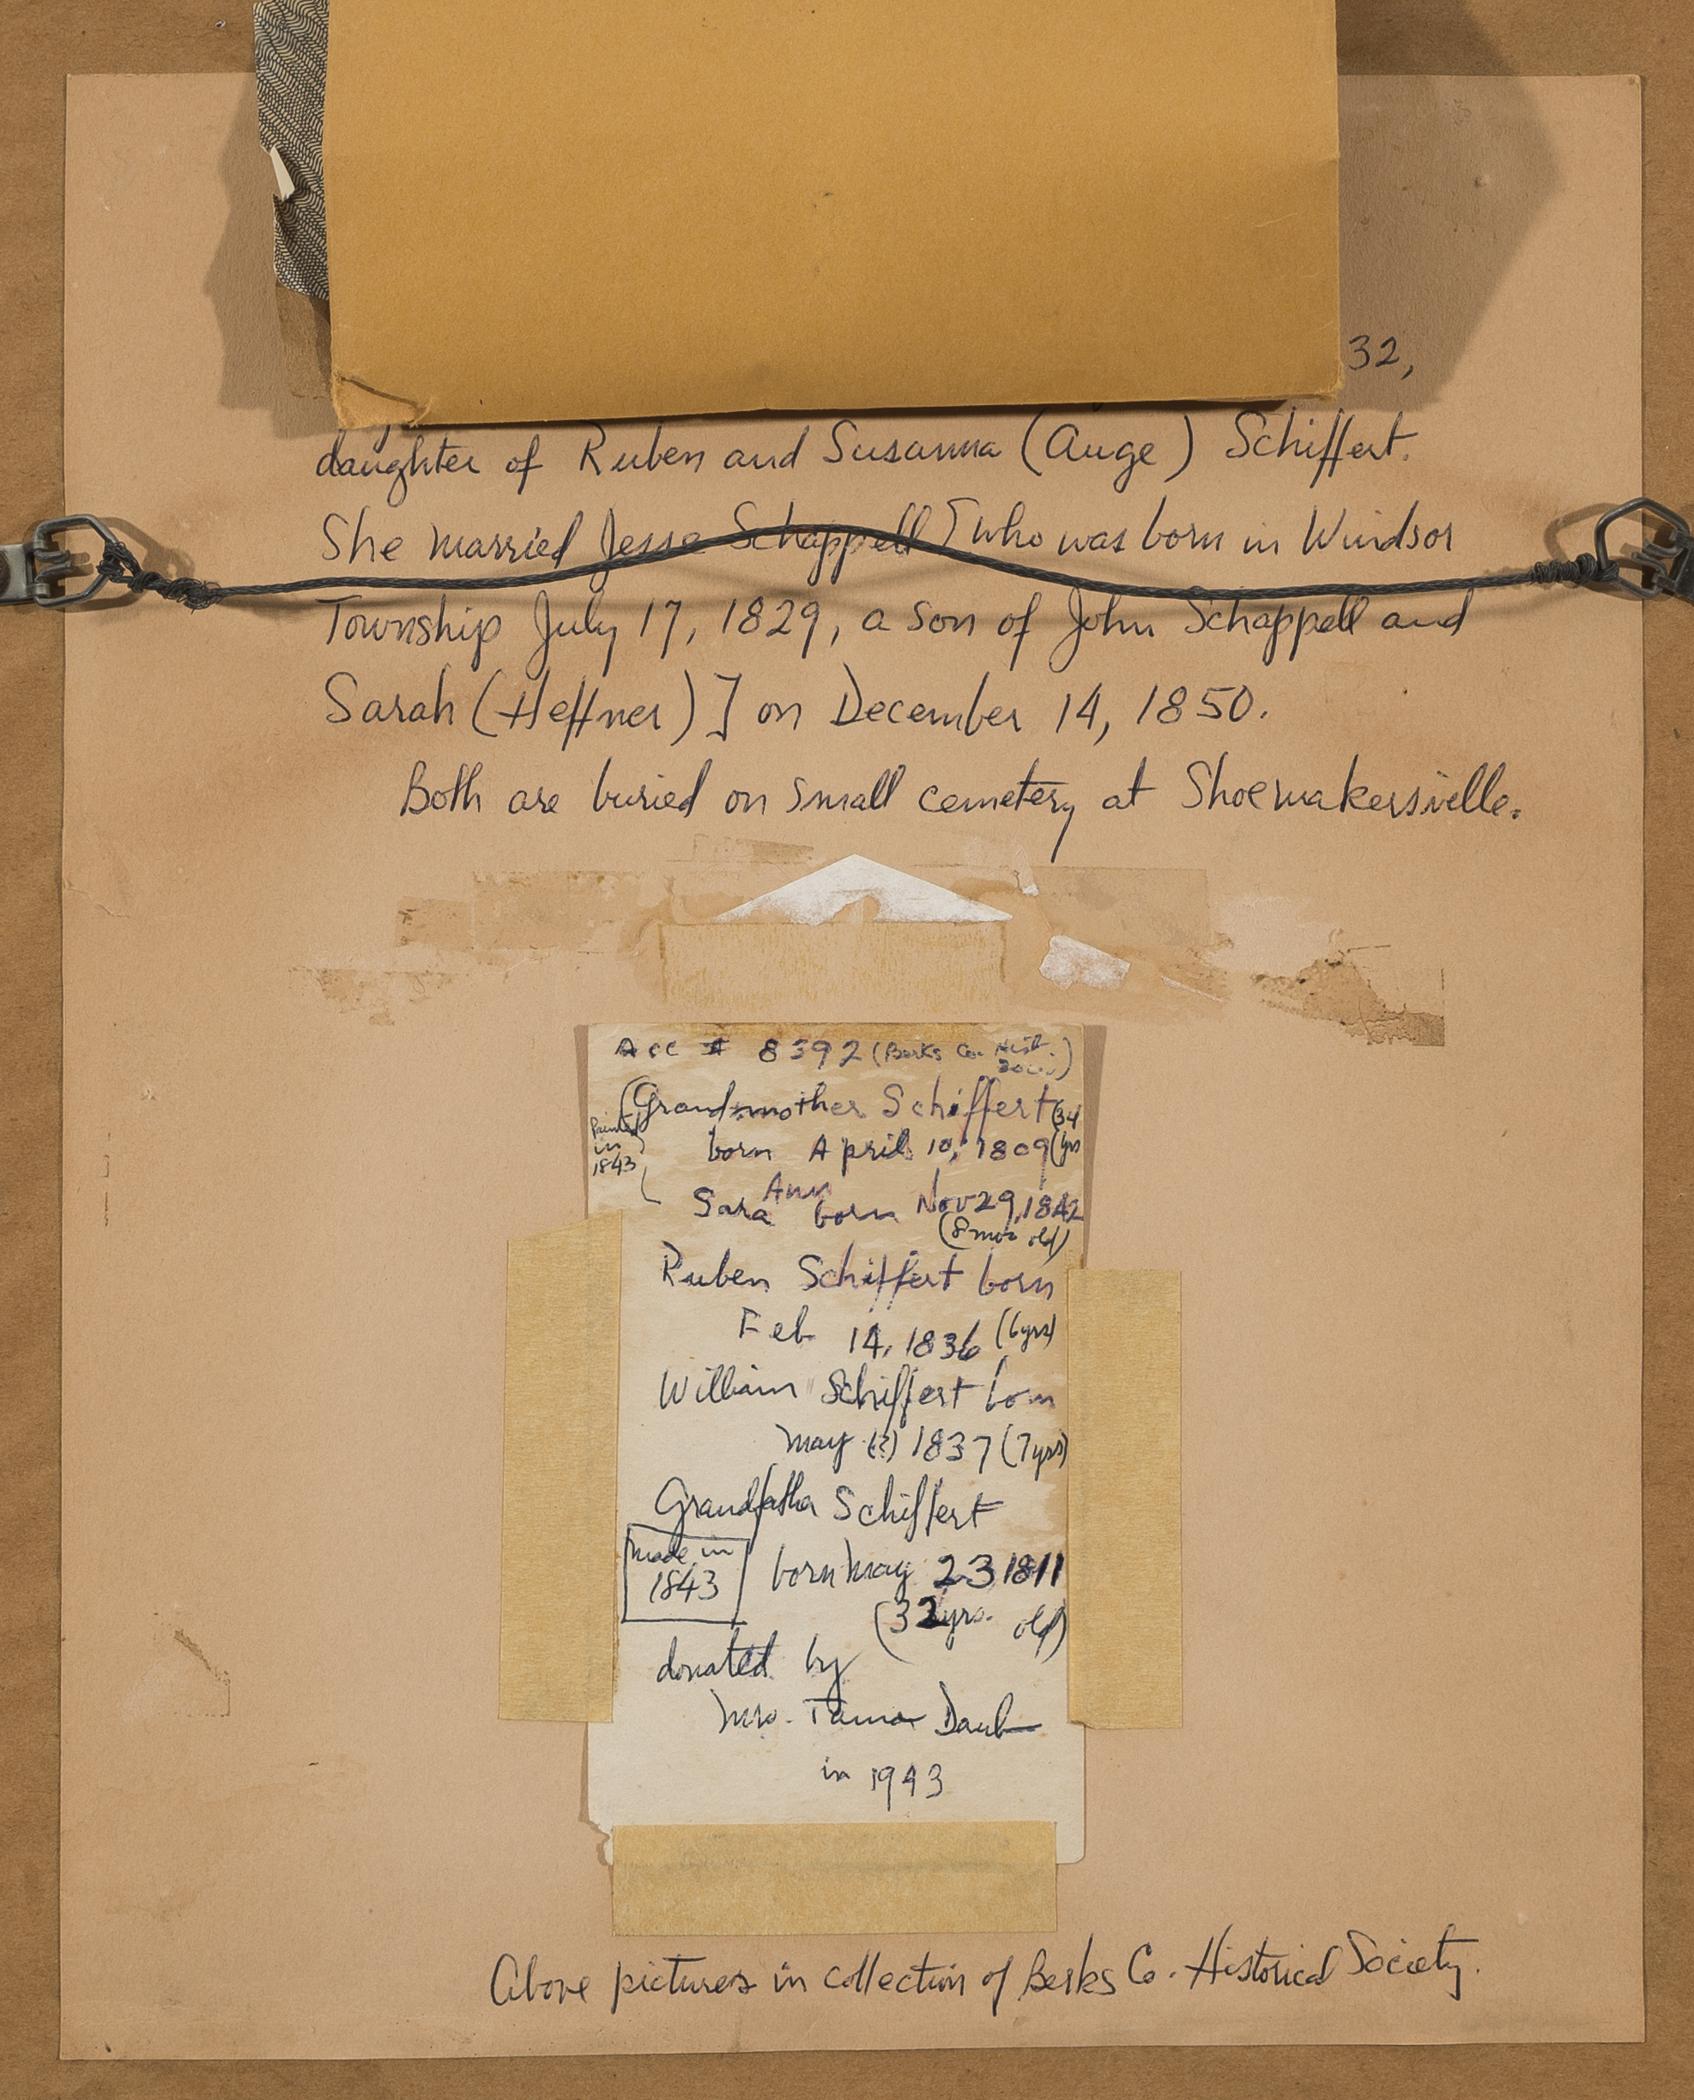 32,
daughter of Ruben and Susanna (Auge) Schiffert.
She married Jesse Schappell [who was born in Windsor
Township July 17, 1829, a son of John Schappell and
Sarah (Heffner)] on December 14, 1850.
Both are buried on small cemetery at Shoemakersville.
Acc # 8392 (Berks Co. Hist. Soc.)
Grandmother Schiffert (34
born April 10, 1809 yrs
Painted
in
1843
Ann
Sara born Nov 29, 1842
(8 mos old)
Ruben Schiffert born
Feb 14, 1836 (6yrs)
William Schiffert born
May (?) 1837 (7yrs)
Grandfather Schiffert
made in
1843
born May 23 1811
(32yrs. old)
donated by
Mrs. Tamar Daub
in 1943
Above pictures in collection of Berks Co. Historical Society.